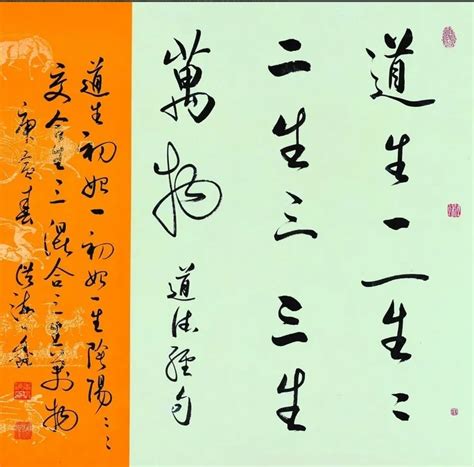 道生一一生二
二生三三生
萬物
道德經句
道生初始一初始一生陰陽
交合生三混合三生萬物
庚寅春